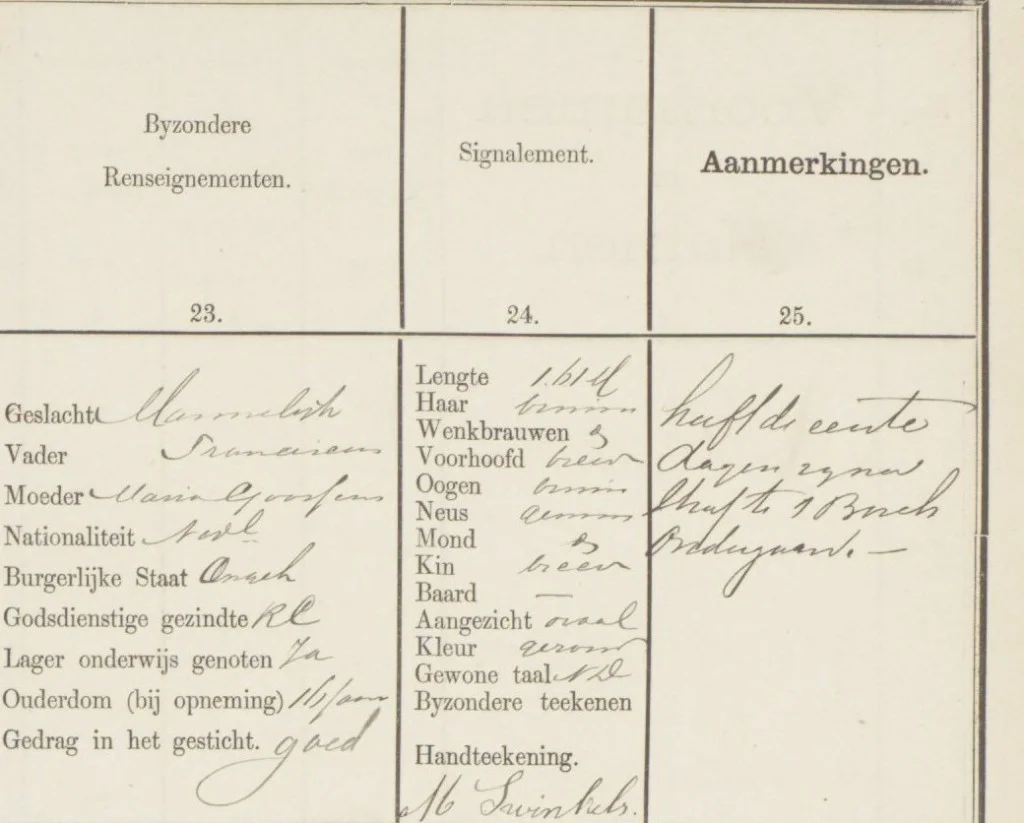 Byzondere
Renseignementen.
23.
Geslacht Mannelijk
Vader Franciscus
Moeder Maria Goossens
Nationaliteit Nedl
Burgerlijke Staat Ongeh
Godsdienstige gezindte RC
Lager onderwijs genoten Ja
Ouderdom (bij opneming) 16 jaar
Gedrag in het gesticht. goed
Signalement.
24.
Lengte 1.61 M
Haar bruin
Wenkbrauwen
Voorhoofd breed
Oogen bruin
Neus gewoon
Mond
Kin breed
Baard —
Aangezicht ovaal
Kleur gezond
Gewone taal ND
Byzondere teekenen
Handteekening.
M Swinkels.
Aanmerkingen.
25.
heeft de eerste
dagen zyner
straf te s Bosch
Ondergaan. —